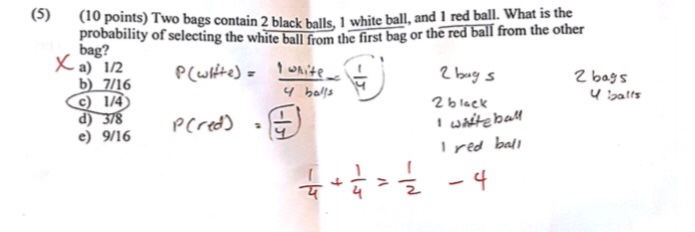 (5) (10 points) Two bags contain 2 black balls, 1 white ball, and 1 red ball. What is the
probability of selecting the white ball from the first bag or the red ball from the other
bag?
X a) 1/2
b) 7/16
c) 1/4
d) 3/8
e) 9/16
P(white) = 1 white / 4 balls = 1/4
P(red) = 1/4
2 bags
2 black
1 white ball
1 red ball
2 bags
4 balls
1/4 + 1/4 = 1/2 - 4